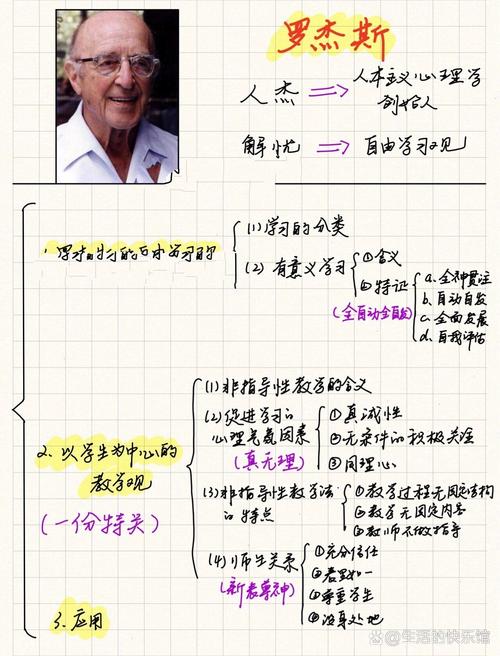 罗杰斯
人杰 ⇒ 人本主义心理学
创始人
解忧 ⇒ 自由学习观
1.
(1)学习的分类
(2)有意义学习
①含义
②特征
(全自动全自发)
a.全神贯注
b.自动自发
c.全面发展
d.自我评估
2.以学生为中心的
教学观
(一份特关)
(1)非指导性教学的含义
(2)促进学习的
心理气氛因素
(真无理)
①真诚性
②无条件的积极关注
③同理心
(3)非指导性教学法
的特点
①教学过程无固定结构
②教学无固定内容
③教师不做指导
(4)师生关系
(新表尊神)
①充分信任
②表里如一
③尊重学生
④设身处地
3.应用
@生活的快乐馆